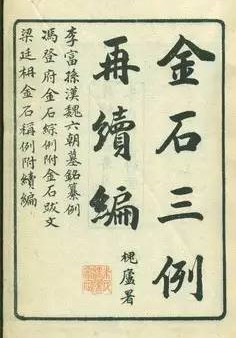 金石三例
再續編
槐廬署
李富孫漢魏六朝墓銘纂例
馮登府金石綜例附金石跋文
梁廷枏金石稱例附續編